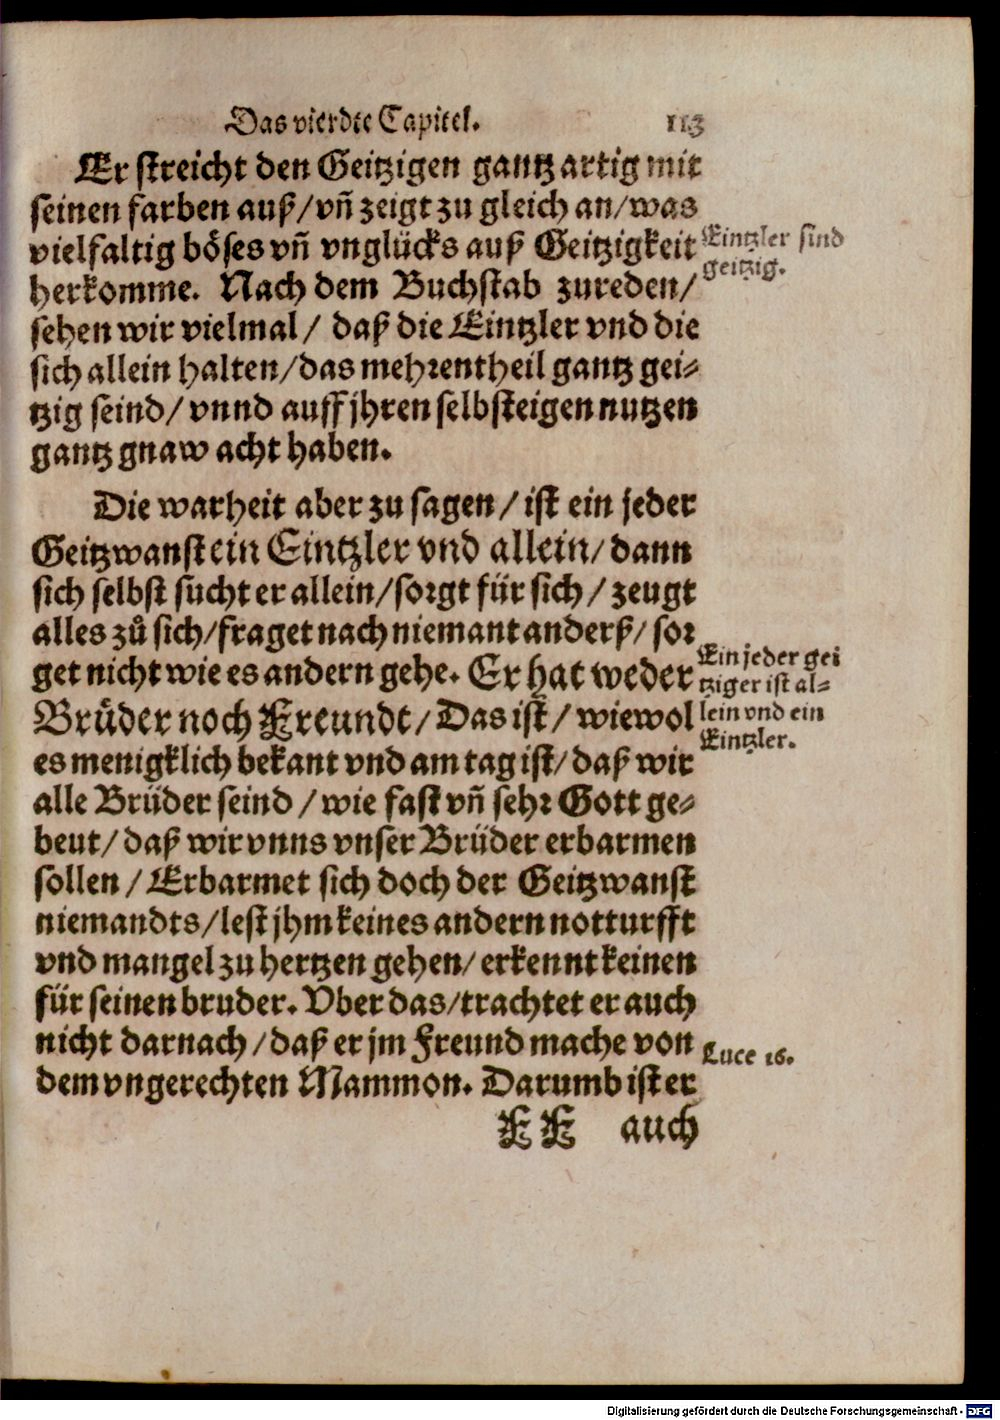 Das vierdte Capitel. 113
Er streicht den Geitzigen gantz artig mit
seinen farben auß/vñ zeigt zu gleich an/was
vielfaltig böses vñ vnglücks auß Geitzigkeit
herkomme. Nach dem Buchstab zureden/
sehen wir vielmal/ daß die Eintzler vnd die
sich allein halten/das mehrentheil gantz gei-
tzig seind/ vnnd auff jhren selbsteigen nutzen
gantz gnaw acht haben.
Eintzler sind
geitzig.
Die warheit aber zu sagen/ ist ein jeder
Geitzwanst ein Eintzler vnd allein/ dann
sich selbst sucht er allein/sorgt für sich/ zeugt
alles zů sich/fraget nach niemant anderß/ sor
get nicht wie es andern gehe. Er hat weder
Brůder noch Freundt/ Das ist/ wiewol
es menigklich bekant vnd am tag ist/ daß wir
alle Brüder seind/ wie fast vñ sehr Gott ge-
beut/ daß wir vnns vnser Brüder erbarmen
sollen/ Erbarmet sich doch der Geitzwanst
niemandts/lest jhm keines andern notturfft
vnd mangel zu hertzen gehen/ erkennt keinen
für seinen bruder. Vber das/trachtet er auch
nicht darnach/daß er jm Freund mache von
dem vngerechten Mammon. Darumb ist er
Ein jeder gei
tziger ist al-
lein vnd ein
Eintzler.
Luce 16.
FF auch
Digitalisierung gefördert durch die Deutsche Forschungsgemeinschaft - DFG